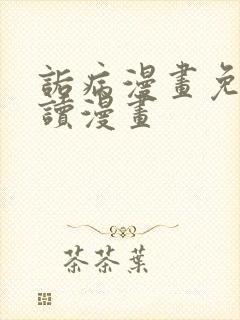 詬病漫畫免
讀漫畫
茶茶葉